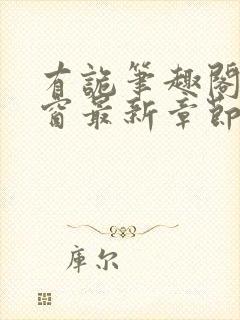 有詭筆趣閣
窗最新章節
庫尔